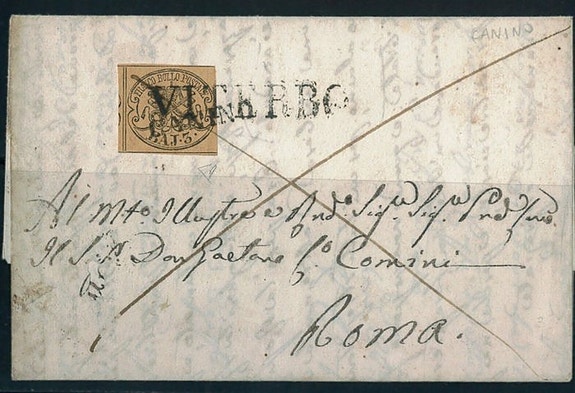 CANINO
FRANCO BOLLO POSTALE
VITERBO
CANINO
BAJ. 3.
Al Mto Illustre e Rndo. Sigr. Sigr. Prdne
Il S.r Don Gaetano Comini
Roma.